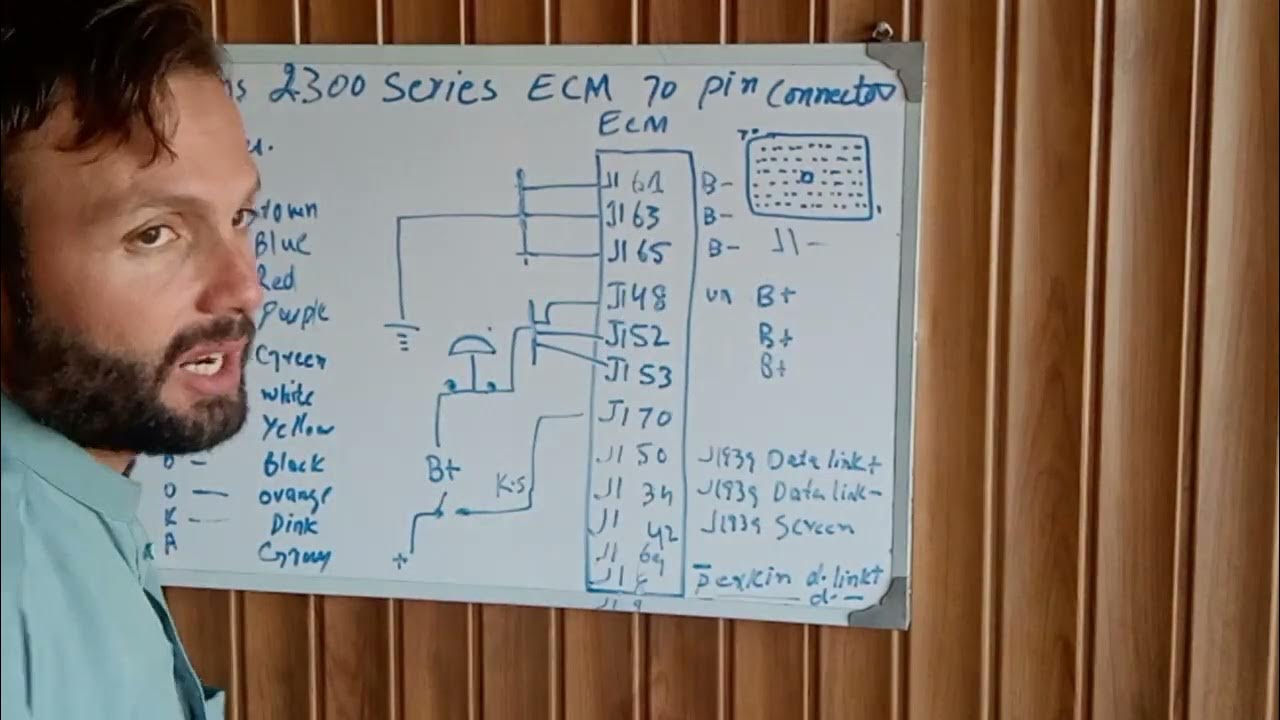 ns 2300 Series ECM 70 pin Connector
ECM
J1 61 B-
J1 63 B-
J1 65 B- J1-
J1 48 un B+
J1 52 B+
J1 53 B+
J1 70
J1 50 J1939 Data link+
J1 34 J1939 Data link-
J1 42 J1939 Screen
J1 69
J1 8 perkin d. link+
J1 9 d. -
B+
K.S
+
rown
Blue
Red
Purple
Green
white
Yellow
B - Black
O - orange
K - Pink
A Gray